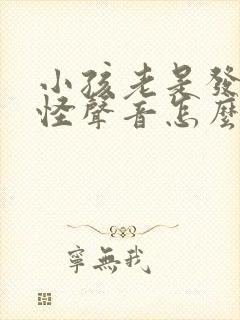 小孩老是發
怪聲音怎麼
寧無我